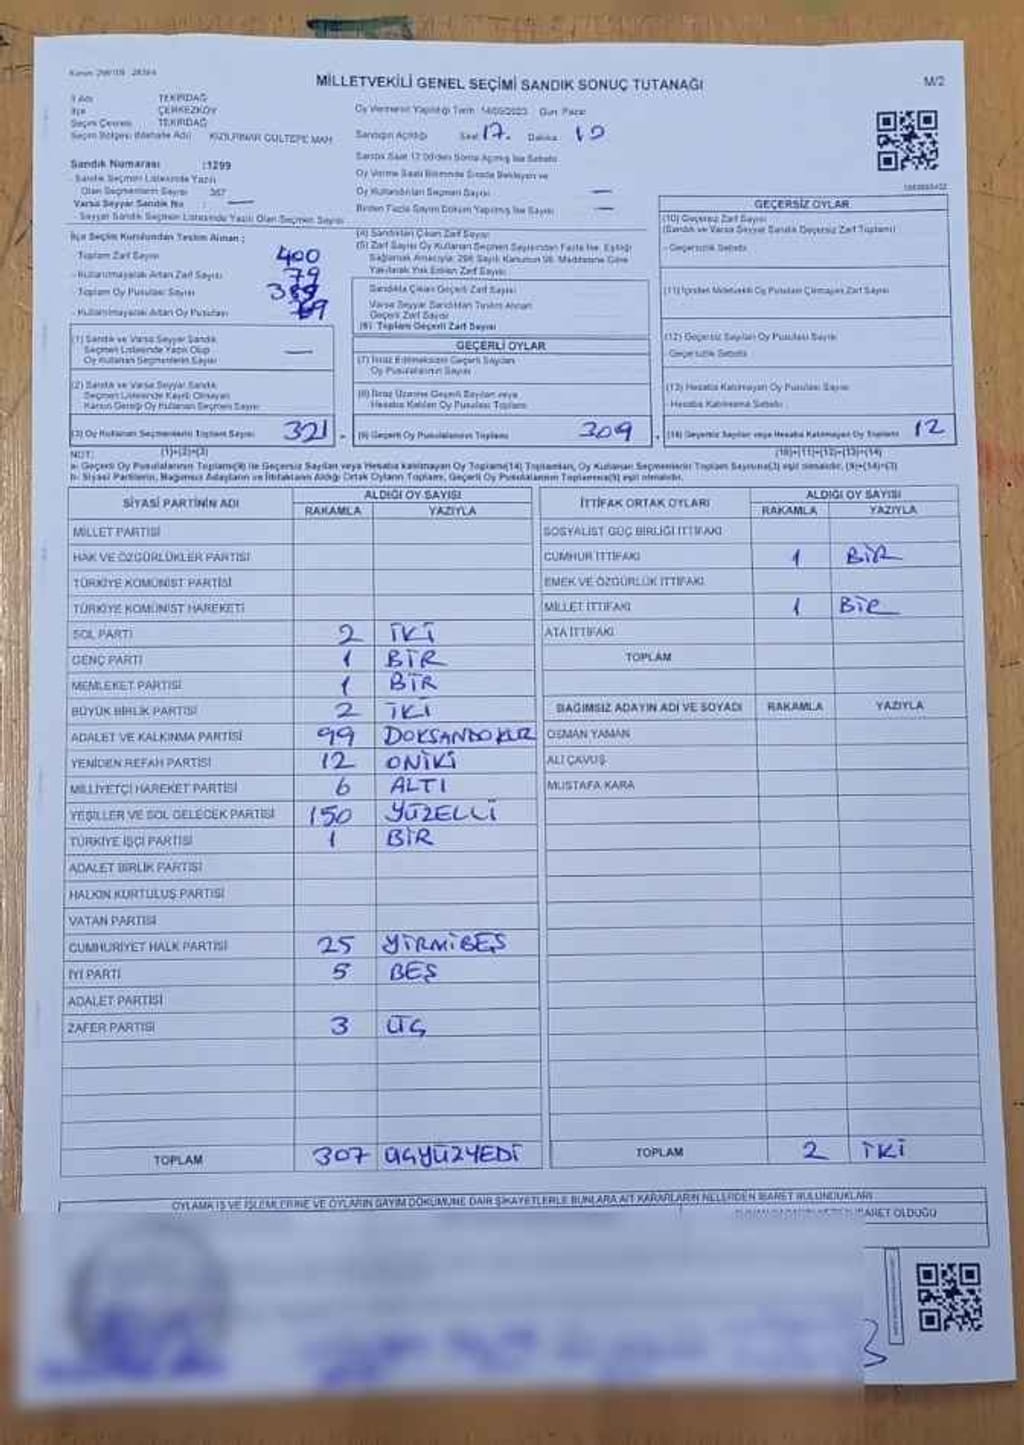 MİLLETVEKİLİ GENEL SEÇİMİ SANDIK SONUÇ TUTANAĞI
M/2
İl Adı TEKİRDAĞ
İlçe ÇERKEZKÖY
Seçim Çevresi TEKİRDAĞ
Seçim Bölgesi (Mahalle Adı) KIZILPINAR GÜLTEPE MAH
Sandık Numarası :1299
- Sandık Seçmen Listesinde Yazılı
Olan Seçmenlerin Sayısı 367
Varsa Seyyar Sandık No : —
- Seyyar Sandık Seçmen Listesinde Yazılı Olan Seçmen Sayısı
Oy Vermenin Yapıldığı Tarih 14/05/2023 Gün Pazar
Sandığın Açıldığı Saat 17. Dakika
Oy Verme Saati Bitiminde Sırada Bekleyen ve
Oy Kullandırılan Seçmen Sayısı —
Birden Fazla Sayım Döküm Yapılmış İse Sayısı —
İlçe Seçim Kurulundan Teslim Alınan ;
Toplam Zarf Sayısı 400
- Kullanılmayarak Artan Zarf Sayısı 79
Toplam Oy Pusulası Sayısı
- Kullanılmayarak Artan Oy Pusulası
(1) Sandık ve Varsa Seyyar Sandık
Seçmen Listesinde Yazılı Olup
Oy Kullanan Seçmenlerin Sayısı —
(2) Sandık ve Varsa Seyyar Sandık
Seçmen Listesinde Kayıtlı Olmayan
Kanun Gereği Oy Kullanan Seçmen Sayısı
(3) Oy Kullanan Seçmenlerin Toplam Sayısı 321
(4) Sandıktan Çıkan Zarf Sayısı
(5) Zarf Sayısı Oy Kullanan Seçmen Sayısından Fazla İse, Eşitliği
Sağlamak Amacıyla; 298 Sayılı Kanunun 98. Maddesine Göre
Yakılarak Yok Edilen Zarf Sayısı
Sandıkta Çıkan Geçerli Zarf Sayısı
Varsa Seyyar Sandıktan Teslim Alınan
Geçerli Zarf Sayısı
(6) Toplam Geçerli Zarf Sayısı
GEÇERLİ OYLAR
(7) İtiraz Edilmeksizin Geçerli Sayılan
Oy Pusulalarının Sayısı
(8) İtiraz Üzerine Geçerli Sayılan veya
Hesaba Katılan Oy Pusulası Toplamı
= (9) Geçerli Oy Pusulalarının Toplamı 309
GEÇERSİZ OYLAR
(10) Geçersiz Zarf Sayısı
(Sandık ve Varsa Seyyar Sandık Geçersiz Zarf Toplamı)
- Geçersizlik Sebebi
(11) İçinden Milletvekili Oy Pusulası Çıkmayan Zarf Sayısı
(12) Geçersiz Sayılan Oy Pusulası Sayısı
- Geçersizlik Sebebi
(13) Hesaba Katılmayan Oy Pusulası Sayısı
- Hesaba Katılmama Sebebi
+ (14) Geçersiz Sayılan veya Hesaba Katılmayan Oy Toplamı 12
NOT: (1)+(2)=(3) (10)+(11)+(12)+(13)=(14)
a- Geçerli Oy Pusulalarının Toplamı(9) ile Geçersiz Sayılan veya Hesaba katılmayan Oy Toplamı(14) Toplamları, Oy Kullanan Seçmenlerin Toplam Sayısına(3) eşit olmalıdır. (9)+(14)=(3)
b- Siyasi Partilerin, Bağımsız Adayların ve İttifakların Aldığı Ortak Oyların Toplamı, Geçerli Oy Pusulalarının Toplamına(9) eşit olmalıdır.
SİYASİ PARTİNİN ADI ALDIĞI OY SAYISI
RAKAMLA YAZIYLA
MİLLET PARTİSİ
HAK VE ÖZGÜRLÜKLER PARTİSİ
TÜRKİYE KOMÜNİST PARTİSİ
TÜRKİYE KOMÜNİST HAREKETİ
SOL PARTİ 2 İKİ
GENÇ PARTİ 1 BİR
MEMLEKET PARTİSİ 1 BİR
BÜYÜK BİRLİK PARTİSİ 2 İKİ
ADALET VE KALKINMA PARTİSİ 99 DOKSANDOKUZ
YENİDEN REFAH PARTİSİ 12 ONİKİ
MİLLİYETÇİ HAREKET PARTİSİ 6 ALTI
YEŞİLLER VE SOL GELECEK PARTİSİ 150 YÜZELLİ
TÜRKİYE İŞÇİ PARTİSİ 1 BİR
ADALET BİRLİK PARTİSİ
HALKIN KURTULUŞ PARTİSİ
VATAN PARTİSİ
CUMHURİYET HALK PARTİSİ 25 YİRMİBEŞ
İYİ PARTİ 5 BEŞ
ADALET PARTİSİ
ZAFER PARTİSİ 3 ÜÇ
TOPLAM 307 ÜÇYÜZYEDİ
İTTİFAK ORTAK OYLARI ALDIĞI OY SAYISI
RAKAMLA YAZIYLA
SOSYALİST GÜÇ BİRLİĞİ İTTİFAKI
CUMHUR İTTİFAKI 1 BİR
EMEK VE ÖZGÜRLÜK İTTİFAKI
MİLLET İTTİFAKI 1 BİR
ATA İTTİFAKI
TOPLAM
BAĞIMSIZ ADAYIN ADI VE SOYADI RAKAMLA YAZIYLA
OSMAN YAMAN
ALİ ÇAVUŞ
MUSTAFA KARA
TOPLAM 2 İKİ
OYLAMA İŞ VE İŞLEMLERİNE VE OYLARIN SAYIM DÖKÜMÜNE DAİR ŞİKAYETLERLE BUNLARA AİT KARARLARIN NELERDEN İBARET BULUNDUKLARI
İBARET OLDUĞU